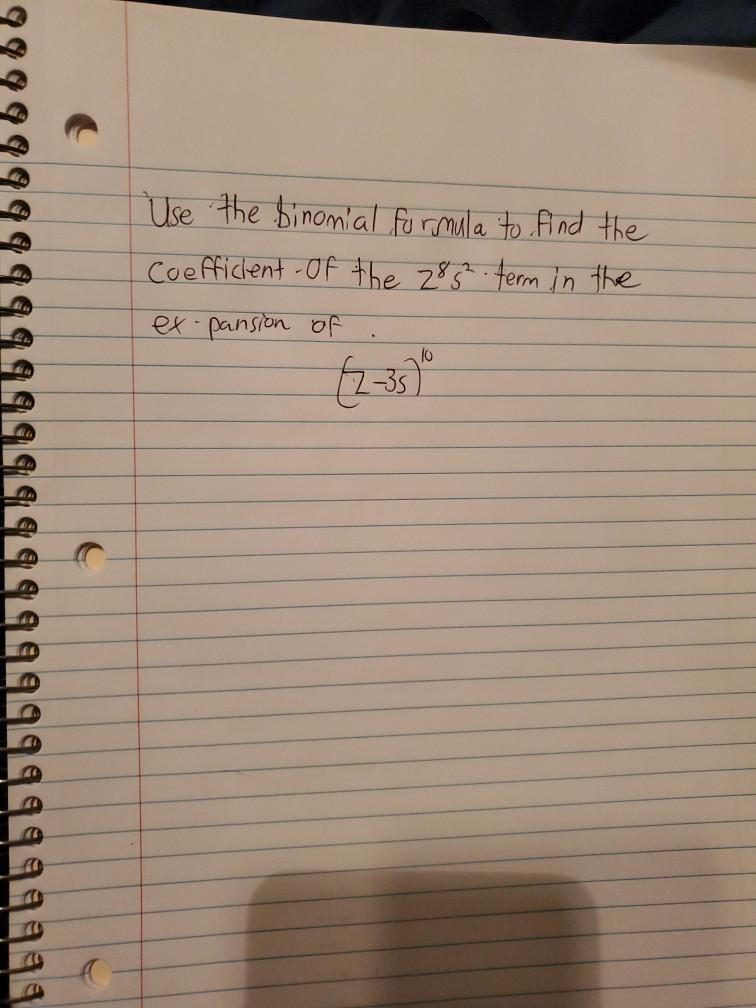 Use the binomial formula to find the
coefficient of the z⁸s² term in the
expansion of .
(z-3s)¹⁰